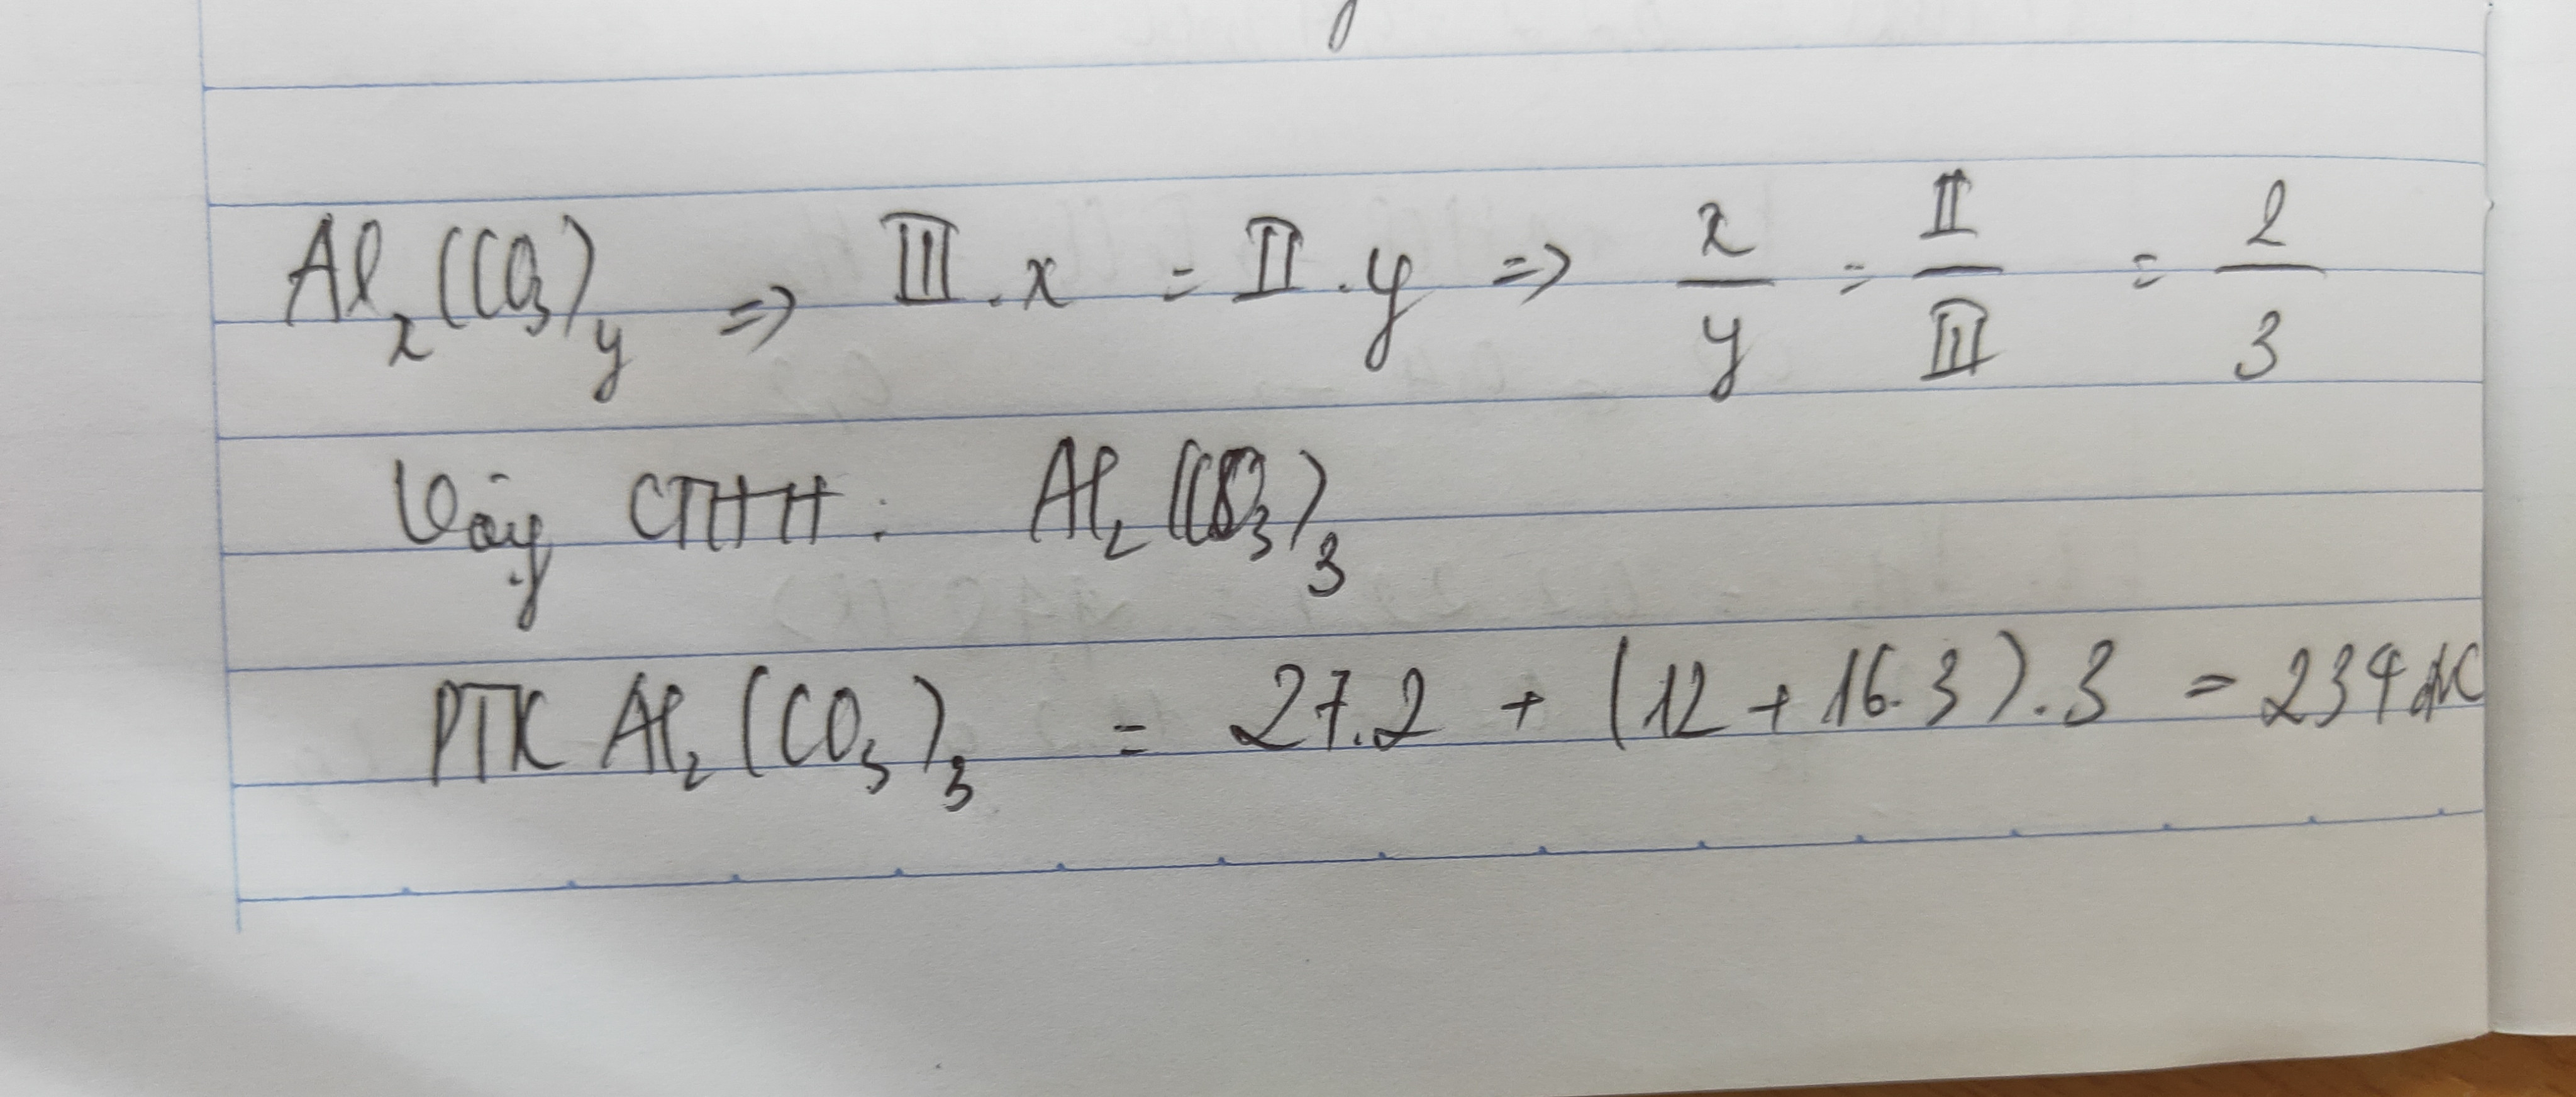 Al_x(CO_3)_y => III.x = II.y => x/y = II/III = 2/3
Vậy CTHH : Al_2(CO_3)_3
PTK Al_2(CO_3)_3 = 27.2 + (12 + 16.3).3 = 234 đvC